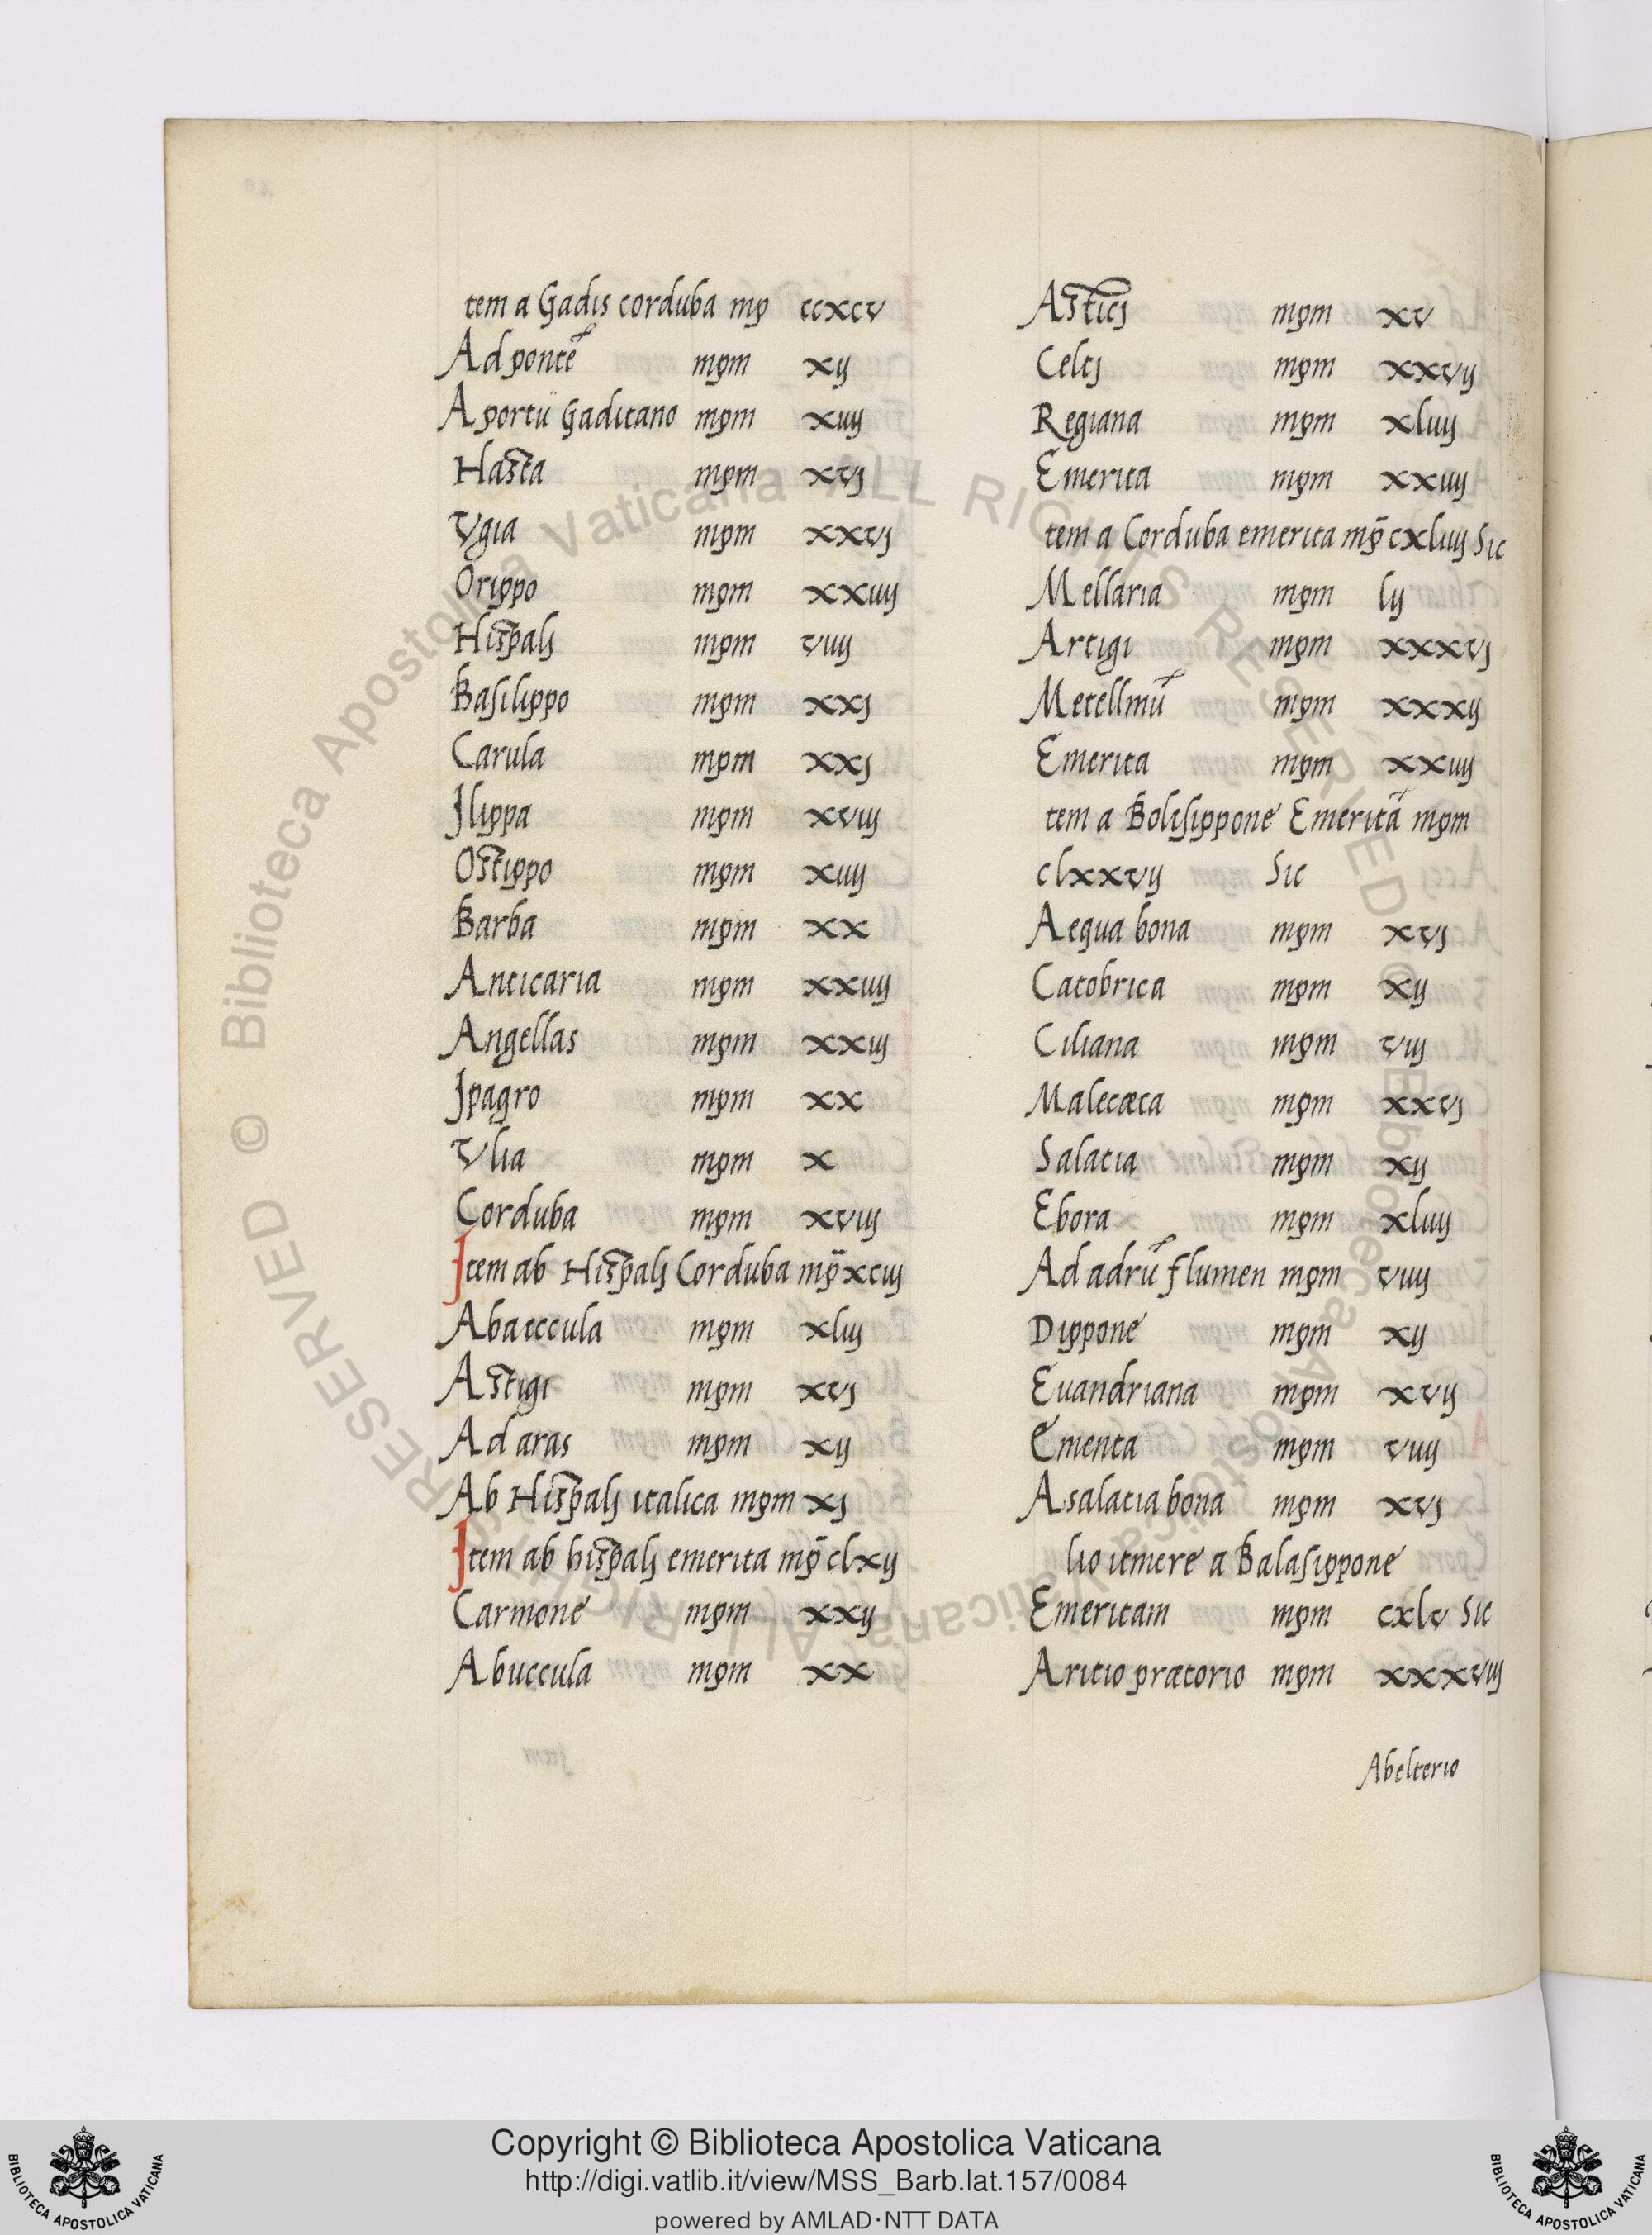 tem a Gadis corduba mp ccxcv
Ad pontē mpm xij
A portū Gaditano mpm xiiij
Hasta mpm xvj
Vgia mpm xxvj
Orippo mpm xxiiij
Hispalj mpm viiij
Basilippo mpm xxj
Carula mpm xxj
Jlippa mpm xviij
Ostippo mpm xiiij
Barba mpm xx
Anticaria mpm xxiiij
Angellas mpm xxiij
Jpagro mpm xx
Vlia mpm x
Corduba mpm xviij
Jtem ab Hispalj Corduba mp̄ xciij
Abaeccula mpm xliij
Astigi mpm xvj
Ad aras mpm xij
Ab Hispalj italica mpm xj
Jtem ab hispalj emerita mp̄ clxij
Carmone mpm xxij
Abuccula mpm xx
Asticj mpm xv
Celtj mpm xxvij
Regiana mpm xliiij
Emerita mpm xxiiij
tem a Corduba emerita mp̄ cxliiij Sic
Mellaria mpm lij
Artigi mpm xxxvj
Metellinū mpm xxxij
Emerita mpm xxiiij
tem a Bolisippone Emeritā mpm
clxxvij Sic
Aequa bona mpm xvj
Catobrica mpm xij
Ciliana mpm viij
Malecæca mpm xxvj
Salacia mpm xij
Ebora mpm xliiij
Ad adrū flumen mpm viiij
Dippone mpm xij
Euandriana mpm xvij
Ementa mpm viiij
A salacia bona mpm xvj
lio itinere a Balasippone
Emeritam mpm cxlv Sic
Aritio prætorio mpm xxxviij
Abelterio
© Biblioteca Apostolica Vaticana ALL RIGHTS RESERVED © Biblioteca Apostolica Vaticana ALL RIGHTS RESERVED
Copyright © Biblioteca Apostolica Vaticana
http://digi.vatlib.it/view/MSS_Barb.lat.157/0084
powered by AMLAD·NTT DATA
BIBLIOTECA APOSTOLICA VATICANA
BIBLIOTECA APOSTOLICA VATICANA